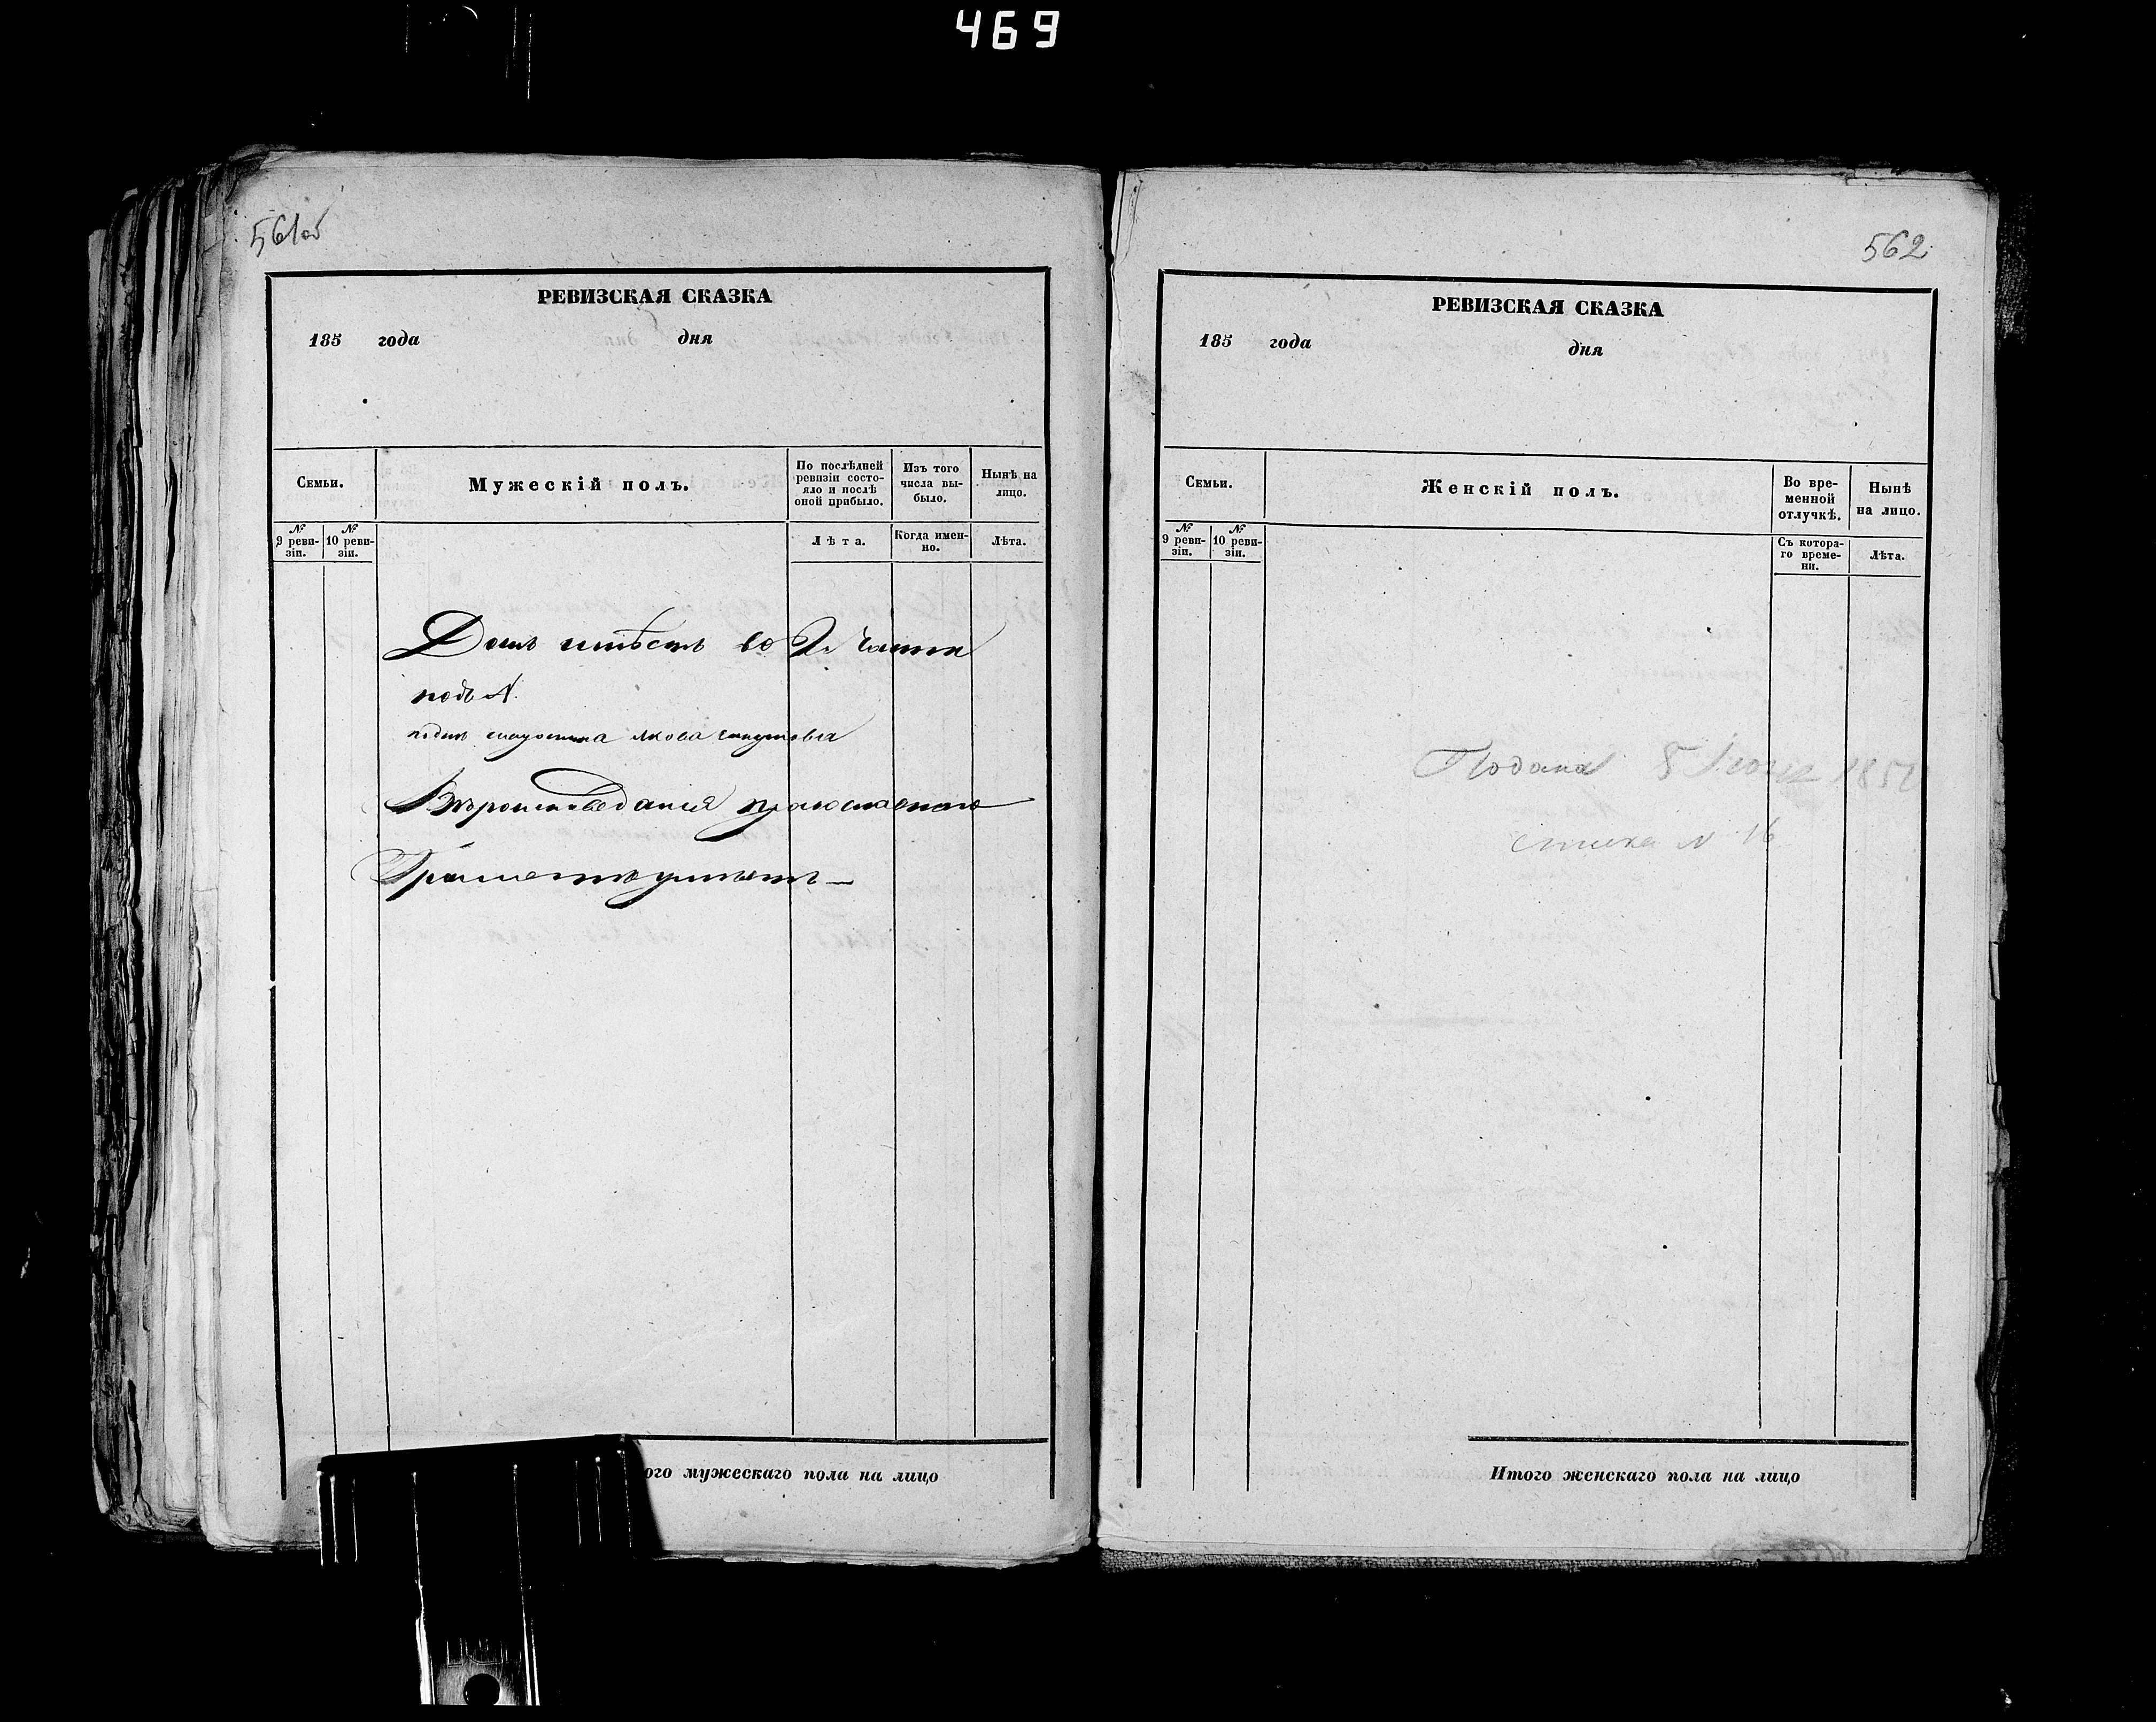 469
561 об
РЕВИЗСКАЯ СКАЗКА
185 года дня
Семьи.
Мужескій полъ.
По послѣдней ревизіи состо-
яло и послѣ оной прибыло.
Изъ того числа вы-
было.
Нынѣ на лицо.
№ 9 реви-
зіи.
№ 10 реви-
зіи.
Лѣта.
Когда имен-
но.
Лѣта.
Домъ имѣетъ во 2й части
подъ №
Якова
Вѣроисповеданія православнаго
Грамоте умѣетъ —
ого мужескаго пола на лицо
562
РЕВИЗСКАЯ СКАЗКА
185 года дня
Семьи.
Женскій полъ.
Во вре-
менной
отлучкѣ.
Нынѣ
на лицо.
№ 9 реви-
зіи.
№ 10 реви-
зіи.
Съ котора-
го време-
ни.
Лѣта.
Подана 5
№ 16
Итого женскаго пола на лицо